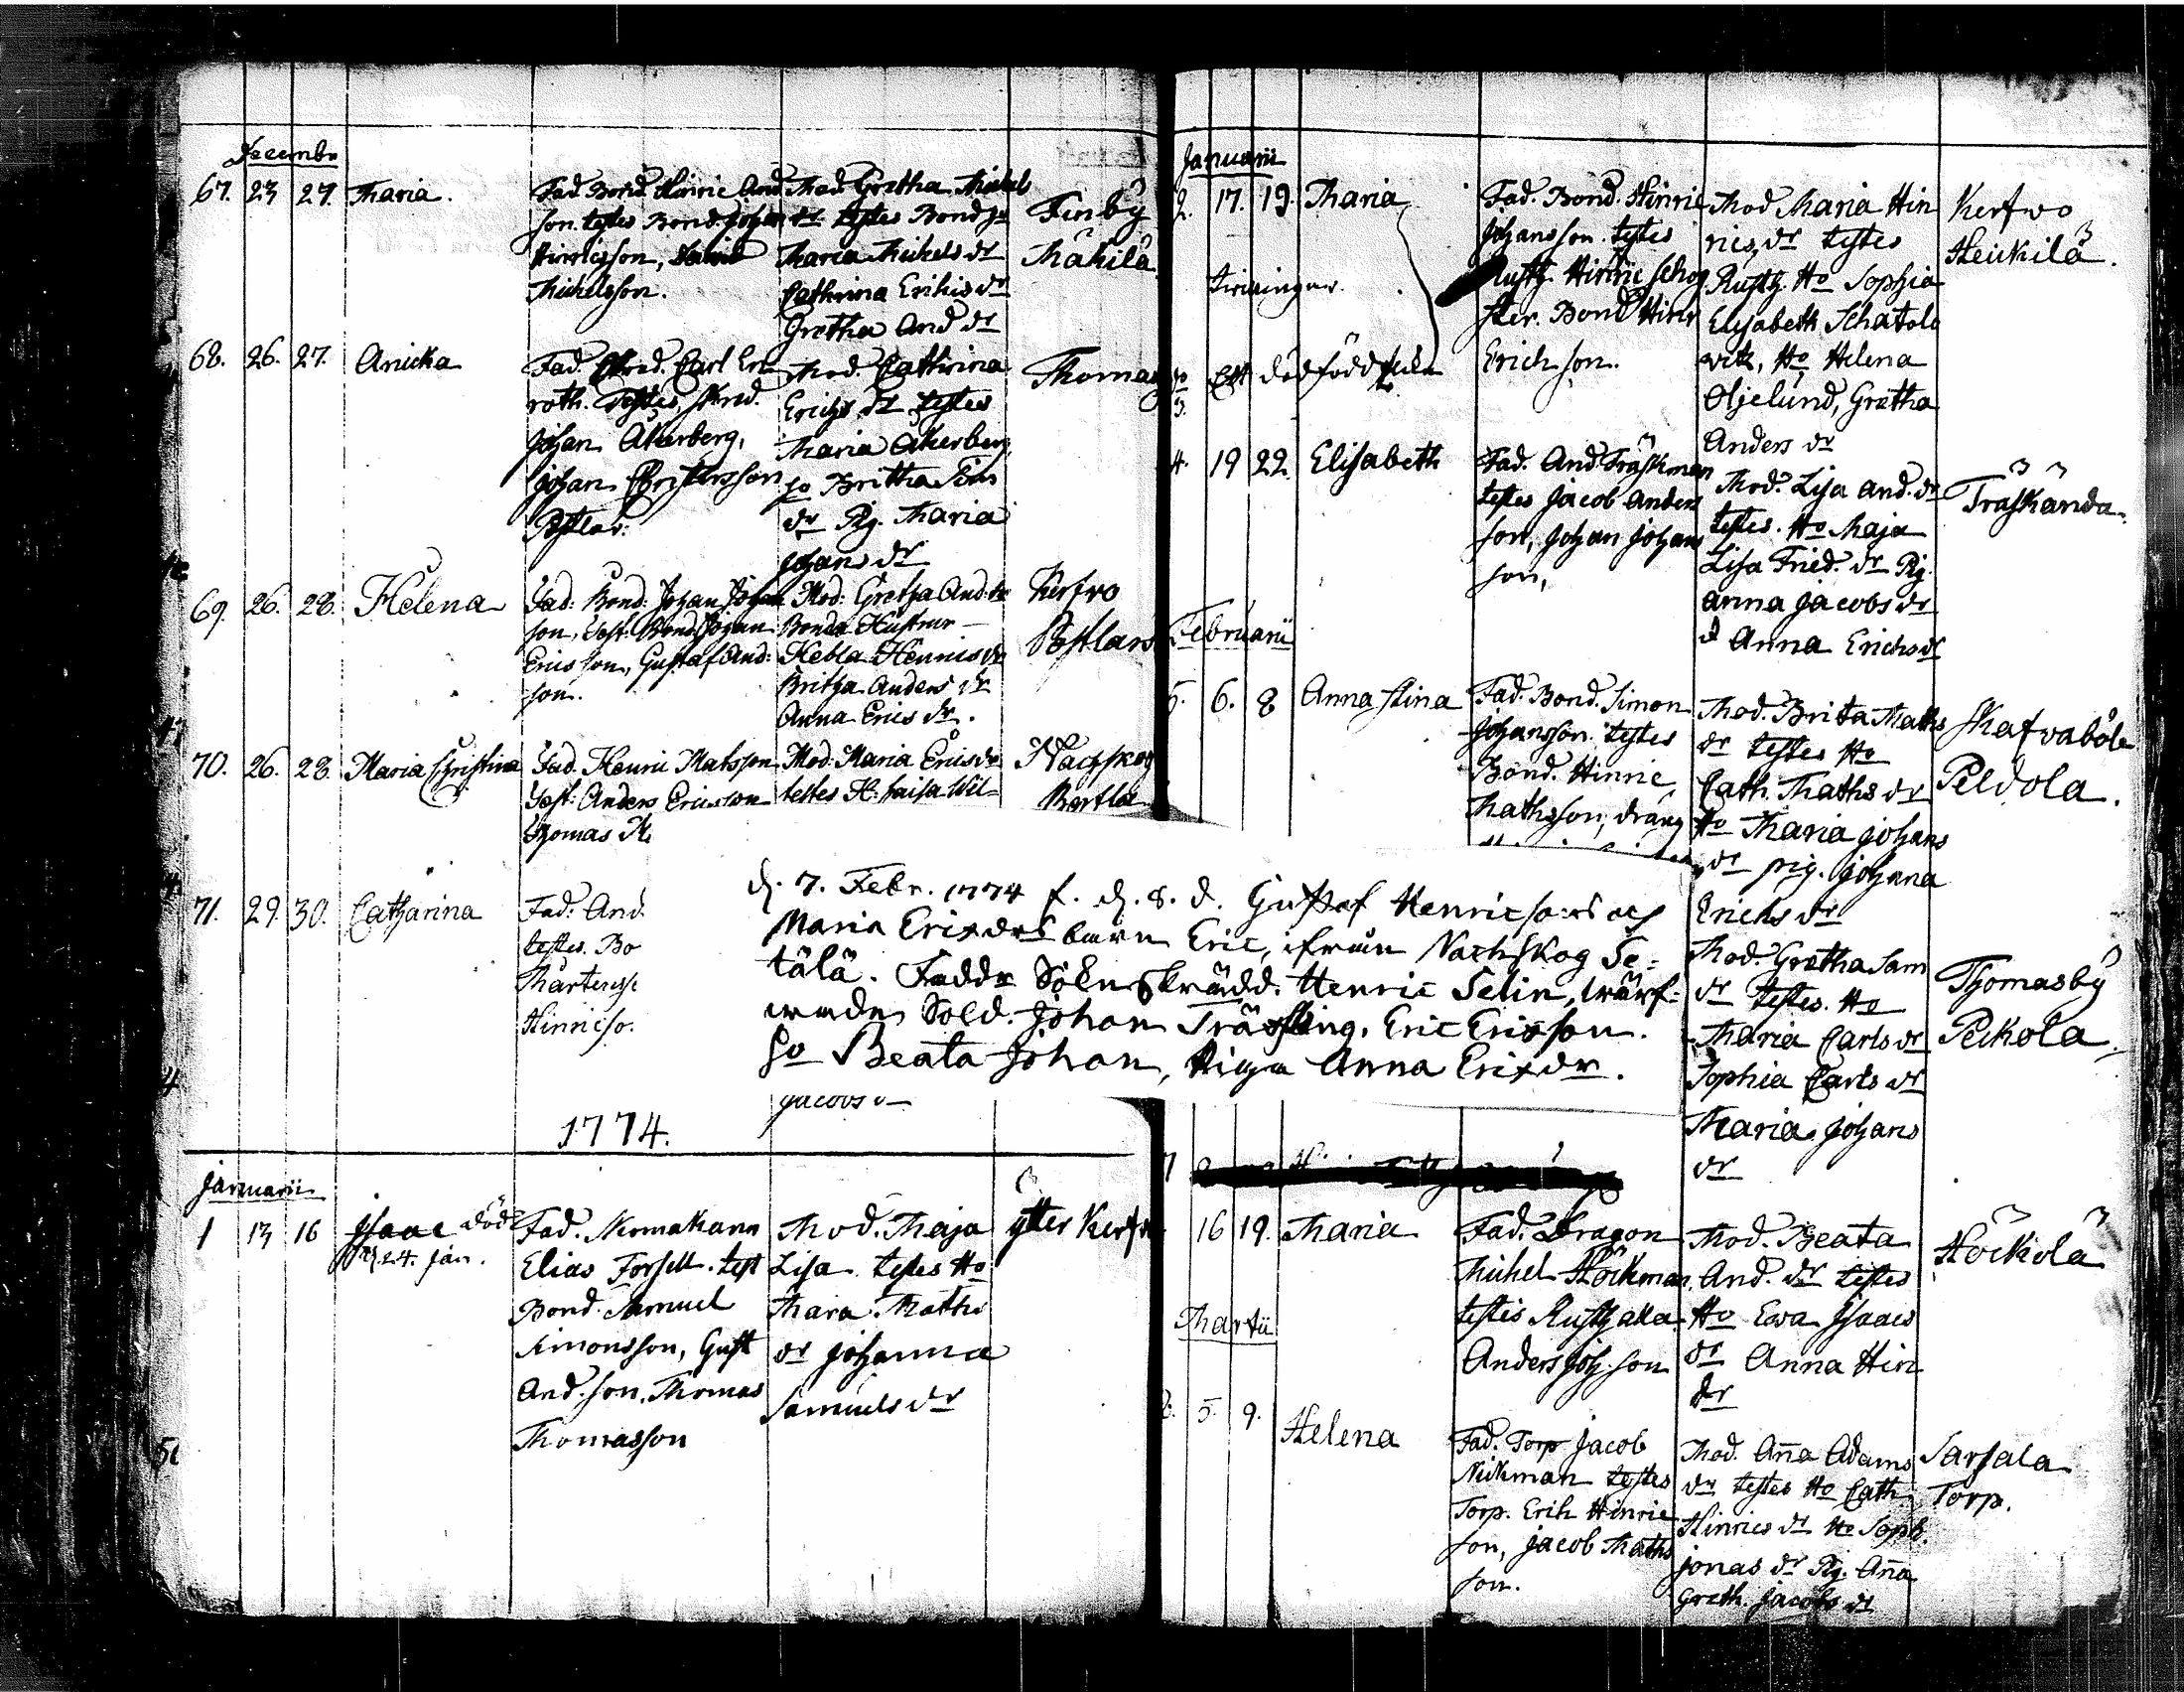 Decembr
67. 23 27. Maria.
Fad. Bond. Hinric And
son. testes Bond. Johan
Hinricsson,
Michelsson.
Mod. Gretha Michels
dr testes Bond
Maria Michels dr
Cathrina Erichs dr
Gretha And dr
Finby
Mahilä
68. 26. 27. Anicka
Fad. Carl
roth. Testes,
Johan Åkerberg,
Johan Christersson
Mod. Cathrina
Erichs dr testes
Maria Åkerberg,
Britha
dr Pig. Maria
Johans dr
Thomas
69. 26. 28. Helena
Fad: Bond: Johan Johan
son, Test: Bond Johan
Ericsson, Gustaf And:
son.
Mod: Gretha And: dr
Bonde Hustrur
Hebla Henrics dr
Britha Anders dr
Anna Erics dr.
Kerfvo
Postlars
70. 26. 28. Maria Christina
Fad. Henric Matsson
Test: Anders Ericsson
Thomas
Mod: Maria Erics dr
testes H. Caisa Wil-
Nachskog
Bertla
71. 29. 30. Catharina
Fad: And.
testes. Bo
Mårtensso
Hinricso.
Jacobs
d. 7. Febr. 1774 f. d. 8. d. Gustaf Henricsons och
Maria Erixdrs barn Eric, ifrån Nachskog Se-
tälä. Faddr Sokn Skrädd. Henric Selin, wärf-
wade Sold. Johan Träskling. Eric Erixson.
Ho Beata Johan, Piga Anna Erixdr.
1774.
Januarii
1 13 16 Isaac död
d 24. Jan.
Fad.
Elias Forsell. test
Bond. Samuel
Simonsson, Gust
And. son, Thomas
Thomasson
Mod. Maja
Lisa testes Ho
Mara Maths
dr Johanna
Samuels dr
ytter Kerfvo
Januarii
2. 17. 19. Maria
Twillingar.
do
3. Ett dödfödt
Fad. Bond. Hinric
Johansson. testes
Rusth. Hinric Schog
ster. Bond Hinr
Erichson.
Mod Maria Hin
rics dr testes
Rusth. Ho Sophia
Elisabeth Schatelo
witz, Ho Helena
Oljelund, Gretha
Anders dr
Kerfvo
Heickilä.
4. 19 22. Elisabeth
Fad. And Träskman
testes Jacob Anders
son, Johan Johans
son,
Mod. Lisa And. dr
testes. Ho Maja
Lisa Fried. dr Pig.
Anna Jacobs dr
d Anna Erichs dr
Träskända.
Februarii
5. 6. 8 Anna Stina
Fad. Bond. Simon
Johansson. testes
Bond. Hinric
Mathsson, dräng
Mod. Brita Maths
dr testes Ho
Cath. Maths dr
Ho Maria Johans
dr pig. Johana
Erichs dr
Skafvaböle
Peldola.
Mod. Gretha Sam
dr testes. Ho
Maria Carls dr
Sophia Carls dr
Maria Johans
dr
Thomasby
Peckola.
7
16 19. Maria
Fad. Dragon
Michel Höckman
testis Rusth
Anders Joh. son
Mod. Beata
And. dr testes
Ho Ewa Isaacs
dr Anna Hin
dr
Höckola
Martii
5. 9. Helena
Fad. Torp Jacob
Nickman testes
Torp. Erich Hinric
son, Jacob Maths
son.
Mod. Aña Adams
dr testes Ho Cath
Hinrics dr Ho Soph.
Jonas dr Pig. Aña
Greth. Jacobs dr
Sarsala
Torp.